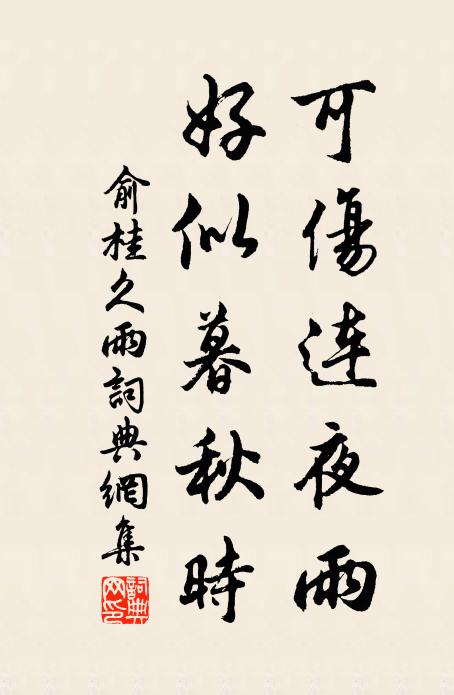 可傷連夜雨
好似暮秋時
俞桂久雨詞典網集
詞典网印